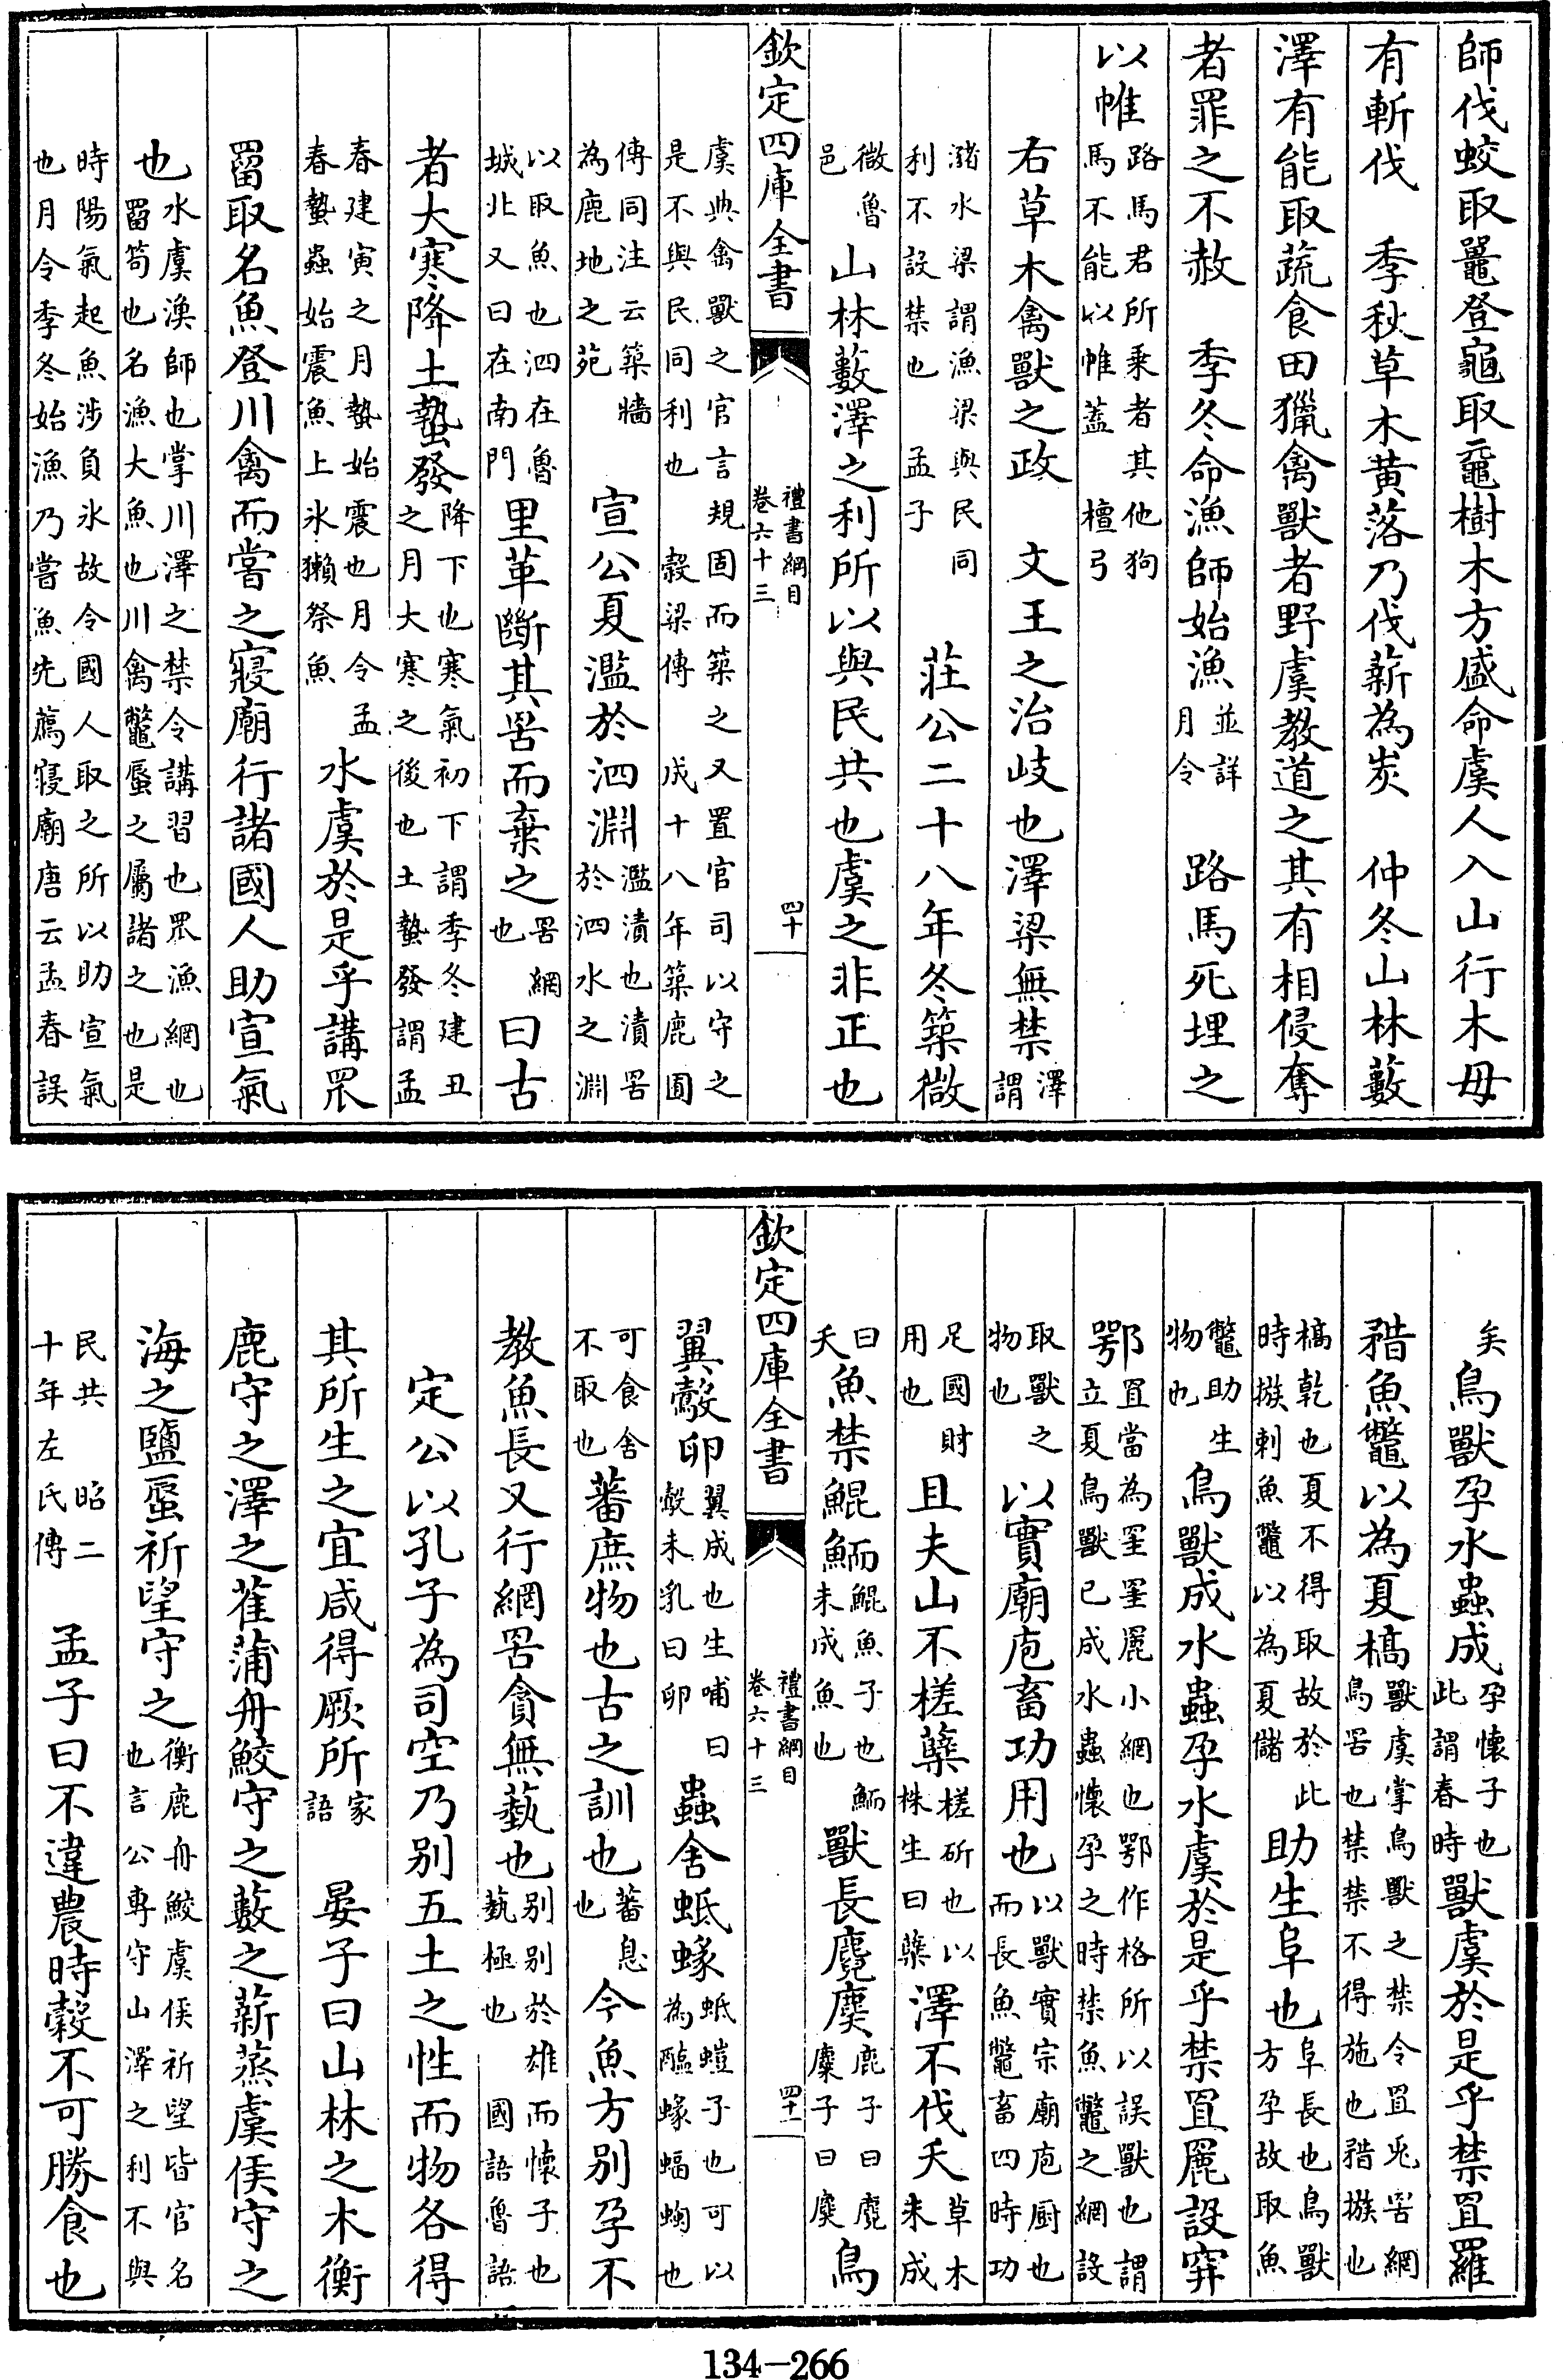 師伐蛟取鼉登龜取黿樹木方盛命虞人入山行木毋
有斬伐 季秋草木黃落乃伐薪為炭 仲冬山林藪
澤有能取蔬食田獵禽獸者野虞教道之其有相侵奪
者罪之不赦 季冬命漁師始漁並詳月令 路馬死埋之
以帷路馬君所乘者其他狗馬不能以帷蓋 檀弓
右草木禽獸之政 文王之治岐也澤梁無禁澤謂
瀦水梁謂漁梁與民同利不設禁也 孟子 莊公二十八年冬築微
微魯邑山林藪澤之利所以與民共也虞之非正也
欽定四庫全書 禮書綱目卷六十三 四十
虞典禽獸之官言規固而築之又置官司以守之是不與民同利也 穀梁傳 成十八年築鹿囿
傳同注云築牆為鹿地之苑 宣公夏濫於泗淵濫漬也漬罟於泗水之淵
以取魚也泗在魯城北又曰在南門里革斷其罟而棄之罟網也曰古
者大寒降土蟄發降下也寒氣初下謂季冬建丑之月大寒之後也土蟄發謂孟
春建寅之月蟄始震也月令孟春蟄蟲始震魚上氷獺祭魚水虞於是乎講罛
罶取名魚登川禽而嘗之寢廟行諸國人助宣氣
也水虞漁師也掌川澤之禁令講習也罛漁網也罶笱也名漁大魚也川禽鼈蜃之屬諸之也是
時陽氣起魚涉負氷故令國人取之所以助宣氣也月令季冬始漁乃嘗魚先薦寢廟唐云孟春誤
矣鳥獸孕水蟲成孕懷子也此謂春時獸虞於是乎禁罝羅
矠魚鼈以為夏槁獸虞掌鳥獸之禁令罝兎罟網鳥罟也禁禁不得施也矠㨖也
槁乾也夏不得取故於此時㨖刺魚鼈以為夏儲助生阜也阜長也鳥獸方孕故取魚
鼈助生物也鳥獸成水蟲孕水虞於是乎禁罝䍡設穽
鄂罝當為罜罜䍡小網也鄂作格所以誤獸也謂立夏鳥獸已成水蟲懷孕之時禁魚鼈之網設
取獸之物也以實廟庖畜功用也以獸實宗廟庖廚也而長魚鼈畜四時功
足國財用也且夫山不槎蘖槎斫也以株生曰蘖澤不伐夭草木未成
曰夭魚禁鯤鮞鯤魚子也鮞未成魚也獸長麑䴠鹿子曰麑麋子曰䴠鳥
欽定四庫全書 禮書綱目卷六十三 四十一
翼鷇卵翼成也生哺曰鷇未乳曰卵蟲舍蚳蝝蚳螘子也可以為醢蝝蝠蜪也
可食舍不取也蕃庶物也古之訓也蕃息也今魚方別孕不
教魚長又行網罟貪無藝也別別於雄而懷子也藝極也 國語魯語
定公以孔子為司空乃別五土之性而物各得
其所生之宜咸得厥所家語 晏子曰山林之木衡
鹿守之澤之萑蒲舟鮫守之藪之薪蒸虞侯守之
海之鹽蜃祈望守之衡鹿舟鮫虞侯祈望皆官名也言公專守山澤之利不與
民共 昭二十年左氏傳 孟子曰不違農時穀不可勝食也
134-266